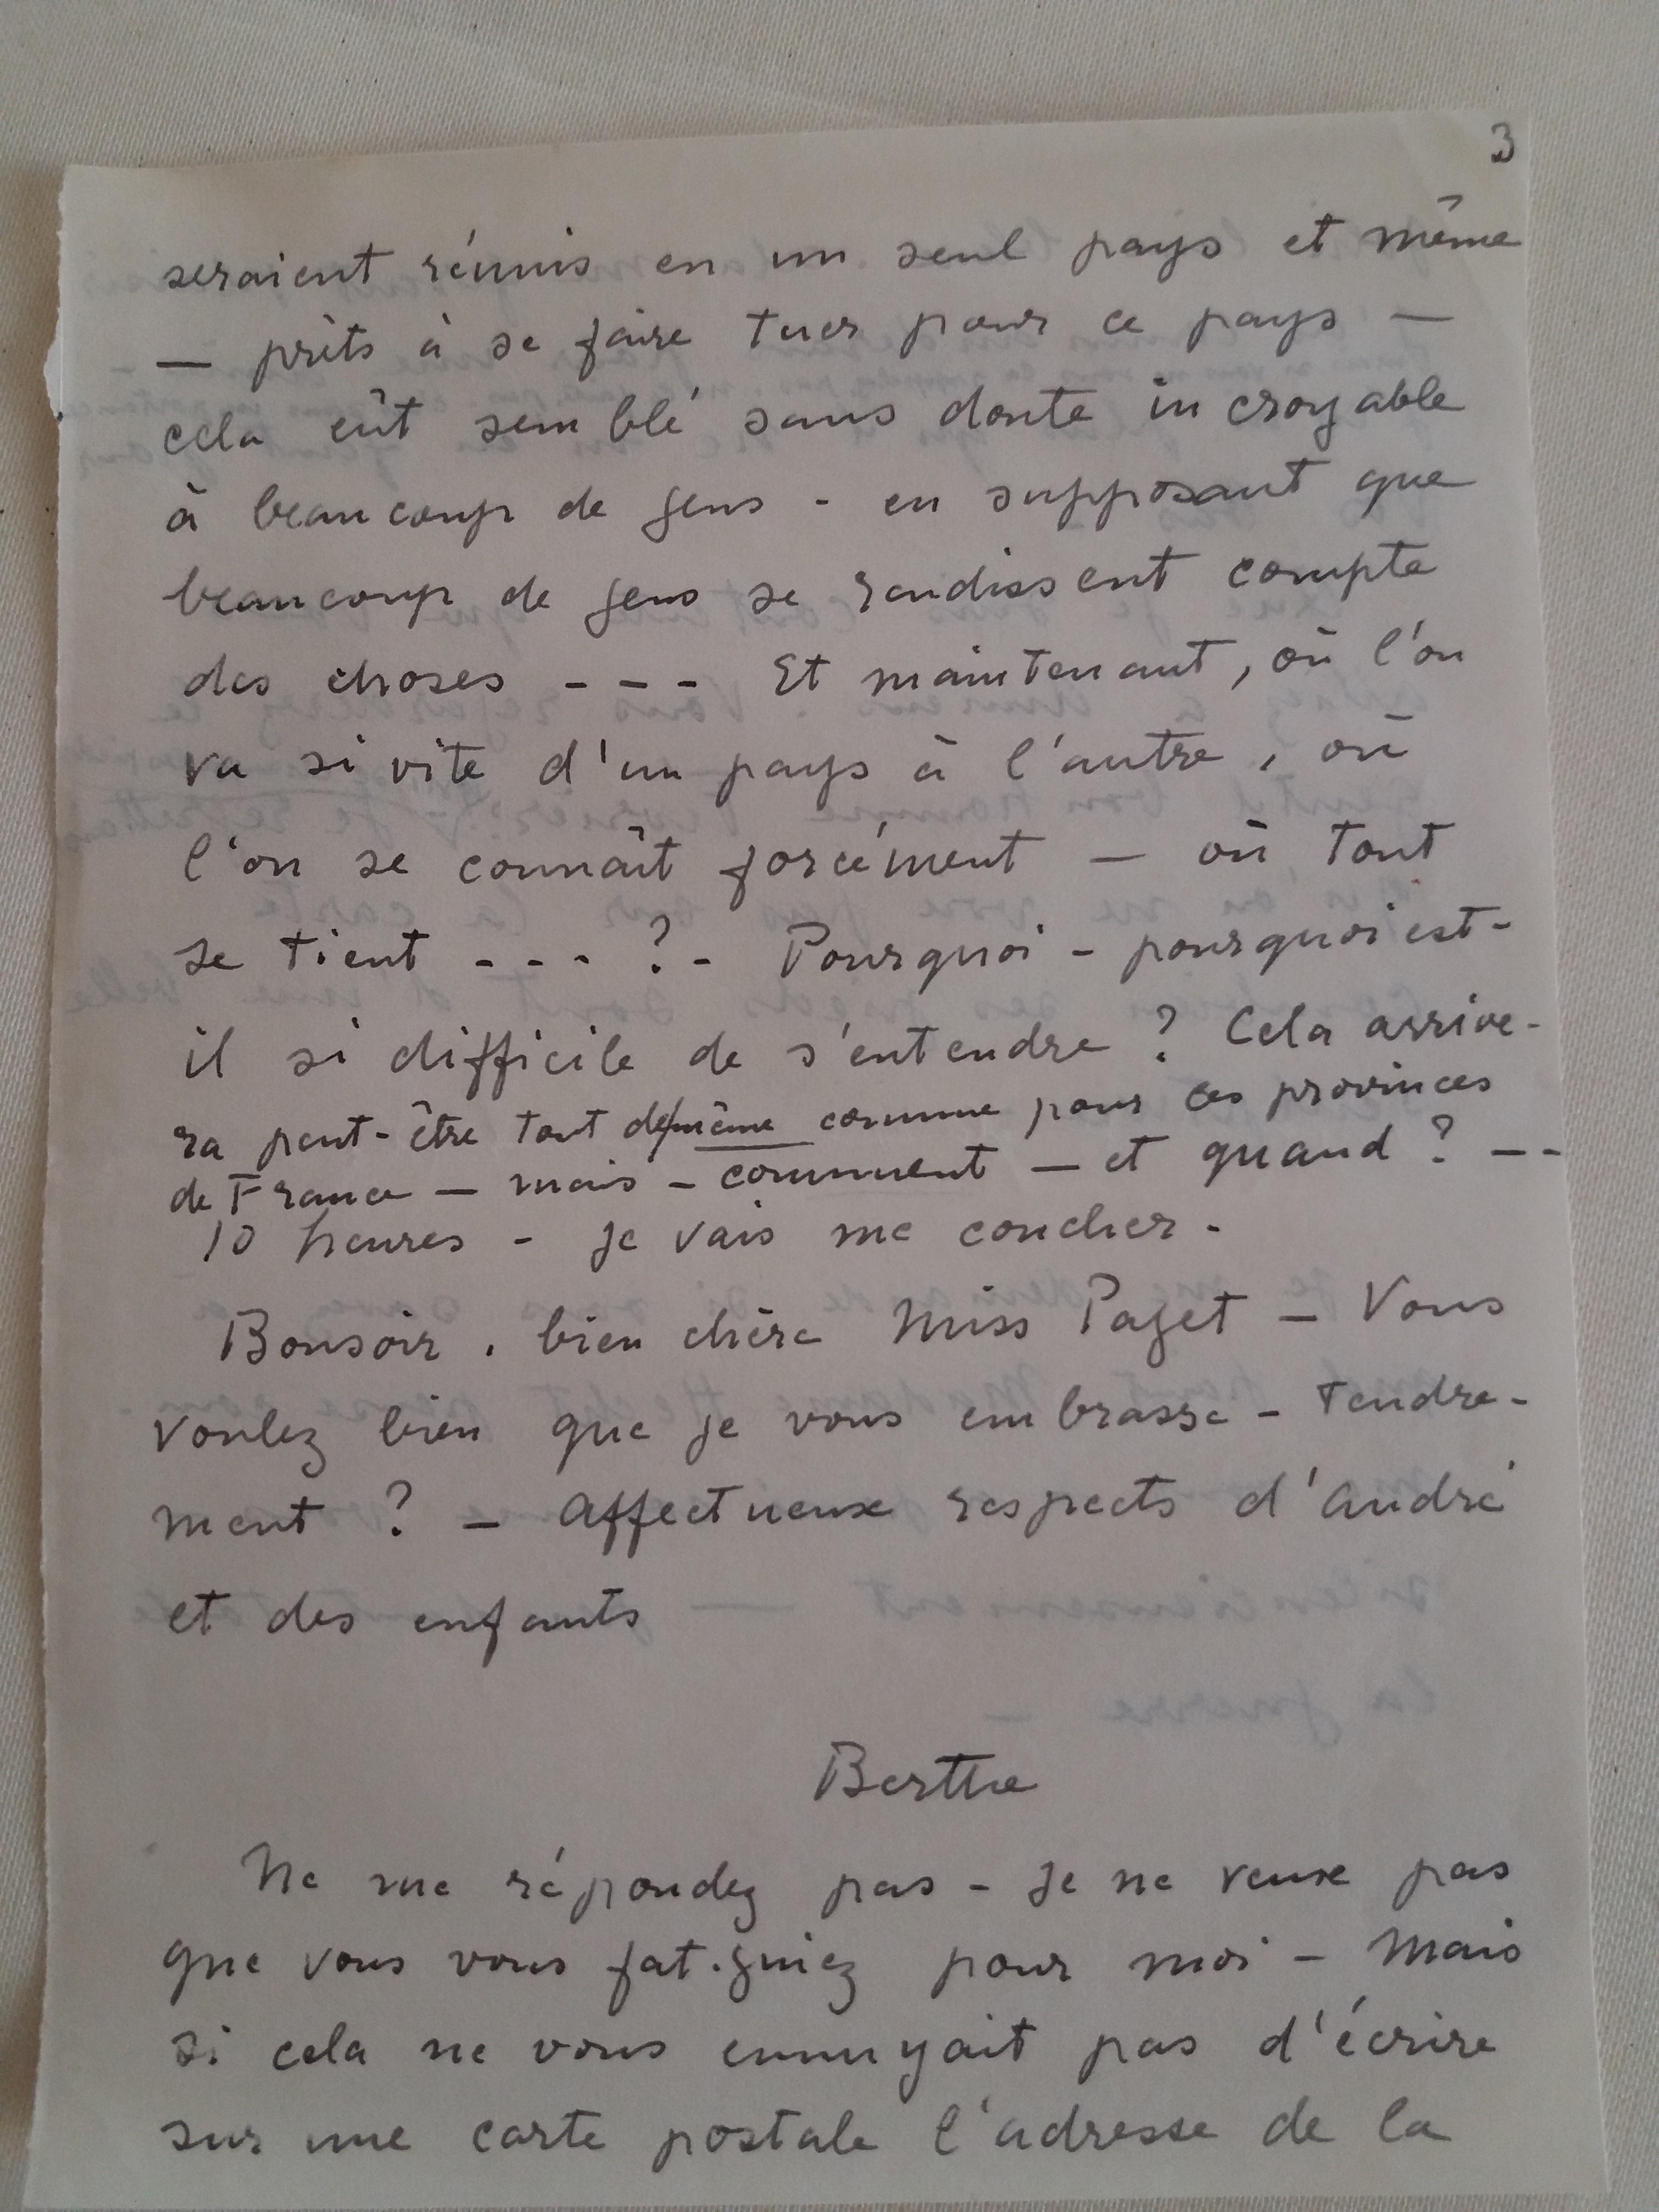 3
seraient réunis en un seul pays et même
— prêts à se faire tuer pour ce pays —
cela eût semblé sans doute incroyable
à beaucoup de gens - en supposant que
beaucoup de gens se rendissent compte
des choses - - - Et maintenant, où l'on
va si vite d'un pays à l'autre, où
l'on se connaît forcément — où tout
se tient - - - ? - Pourquoi - pourquoi est-
il si difficile de s'entendre ? Cela arrive-
ra peut-être tout de/même comme pour ces provinces
de France — mais - comment — et quand ? - -
10 heures - je vais me coucher -
Bonsoir, bien chère Miss Paget — Vous
voulez bien que je vous embrasse - tendre-
ment ? — Affectueux respects d'André
et des enfants
Berthe
Ne me répondez pas - Je ne veux pas
que vous vous fatiguiez pour moi - Mais
si cela ne vous ennuyait pas d'écrire
sur une carte postale l'adresse de la